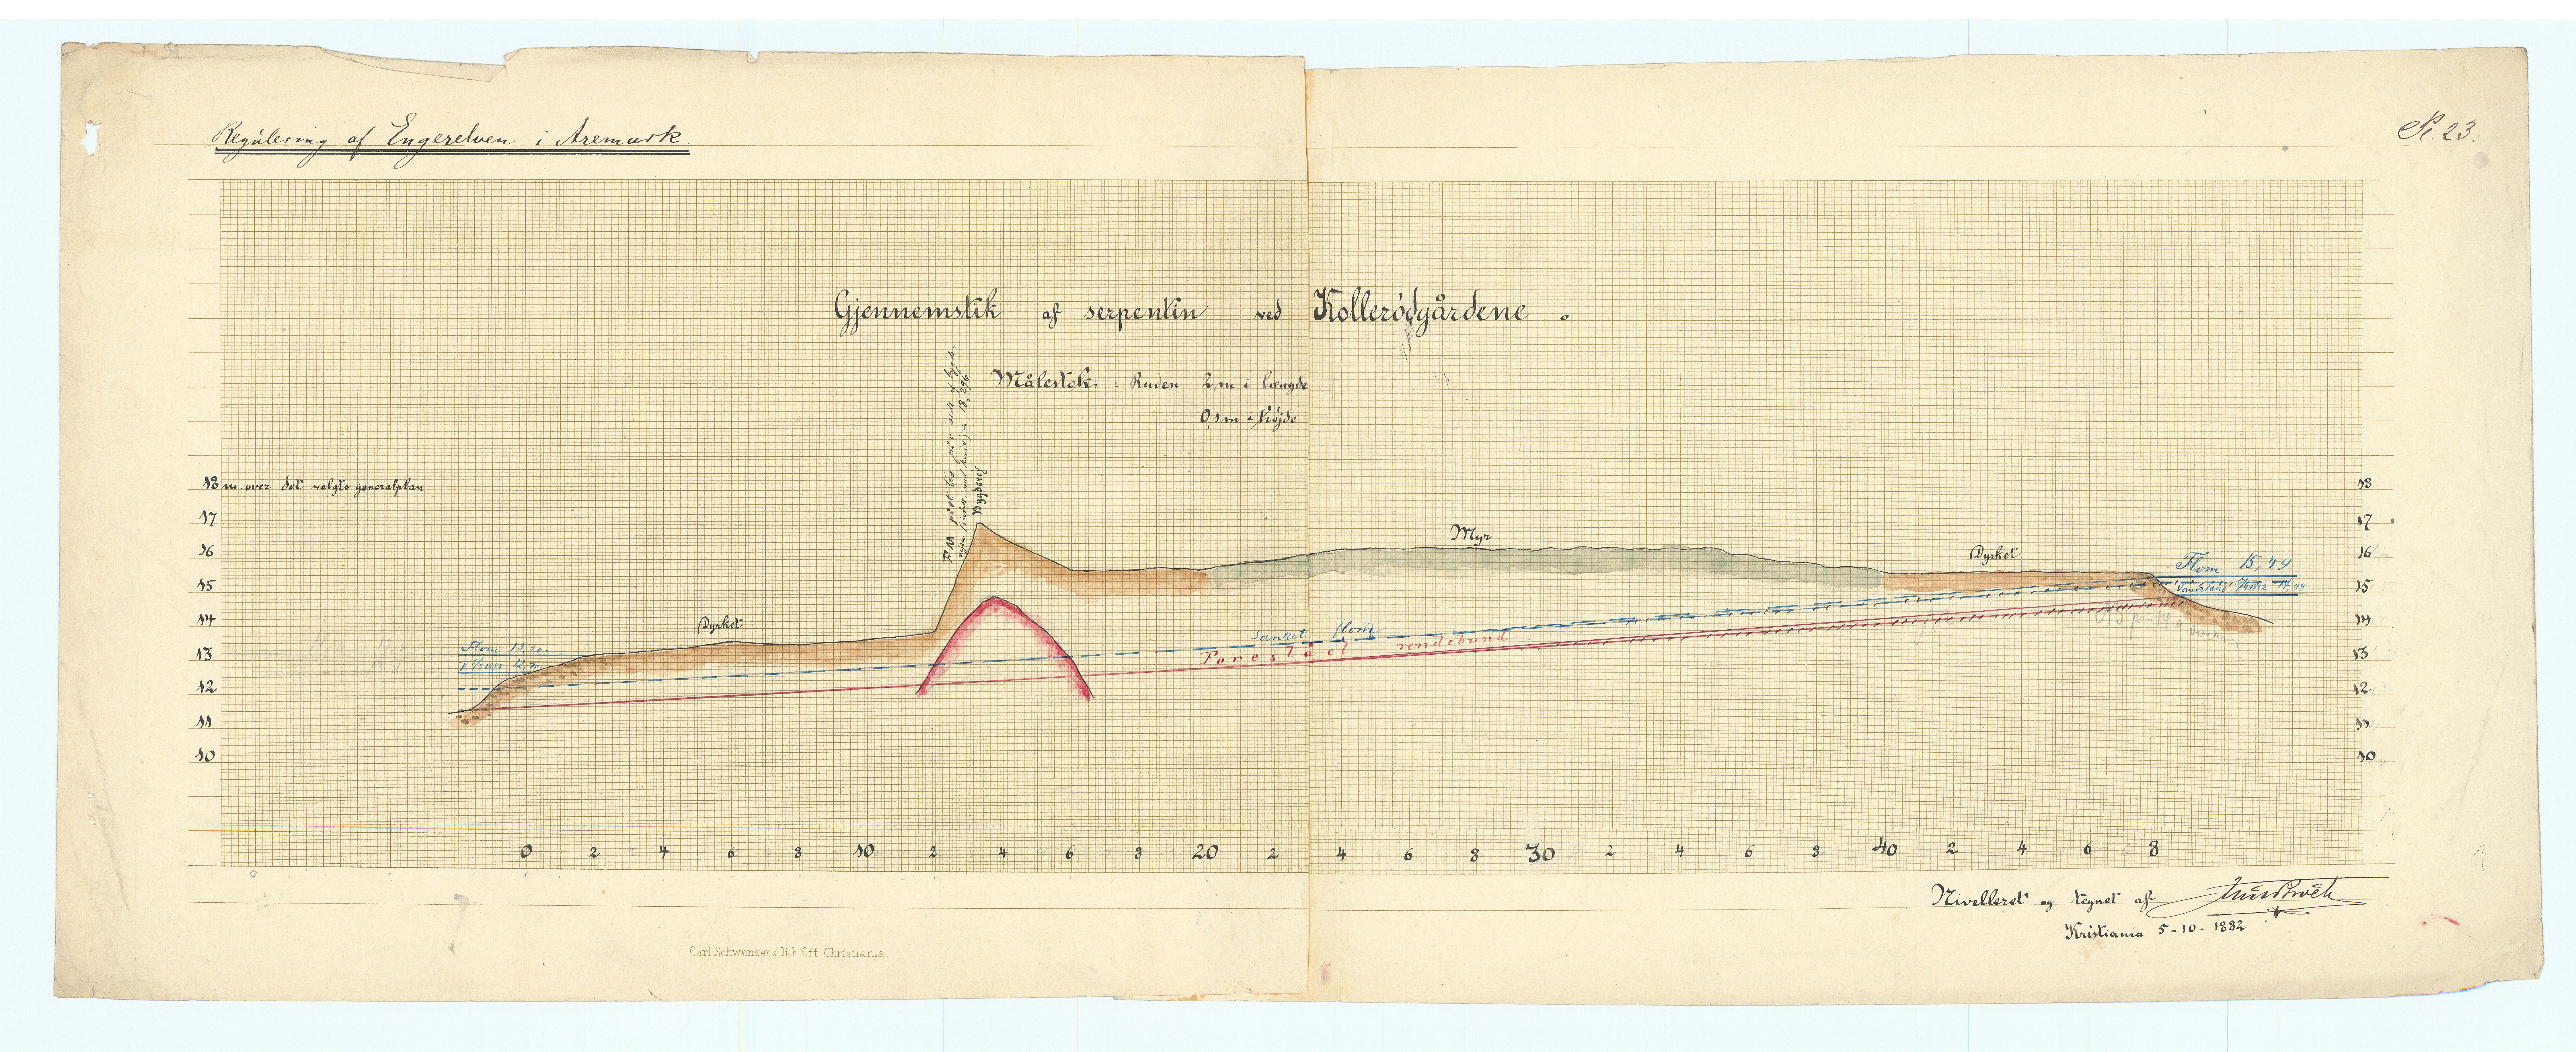 Regulering af Engerelven i Aremark.
Pl. 23.
Gjennemstik af serpentin ved Kollerödgårdene.
Målestok: Ruden 2 m i længde
0,1 m " højde
FM på et træ på v. side af bygde-
vejen = 18,296
Bygdevej
18 m. over det valgte generalplan
18
17
17
Myr
16
Dyrket
16
Flom 15,49
15
15
Vandstand 14,98
14
Dyrket
14
Flom 13,20.
Sænket flom
13
Foreslået rendebund.
13
12
12
11
11
10
10
0 2 4 6 8 10 2 4 6 8 20 2 4 6 8 30 2 4 6 8 40 2 4 6 8
Nivelleret og tegnet af
Kristiania 5-10-1882
Carl Schwenzens lith. Off. Christiania.